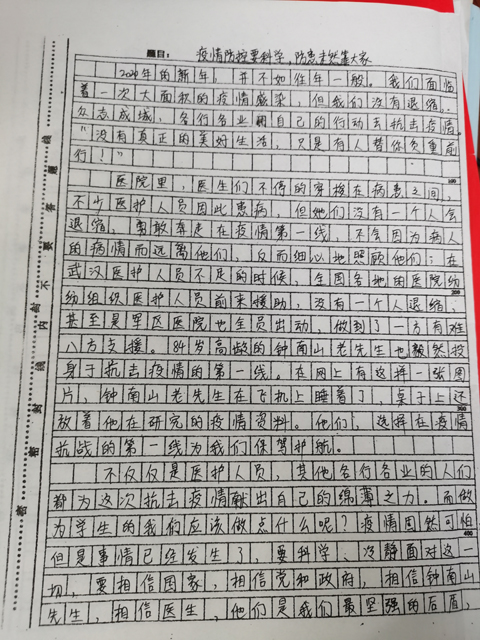 题目： 疫情防控要科学，防患未然靠大家
2020年的新年，并不如往年一般。我们面临
着一次大面积的疫情感染，但我们没有退缩，
众志成城，各行各业用自己的行动去抗击疫情。
“没有真正的美好生活，只是有人替你负重前
行！”
100
医院里，医生们不停的穿梭在病患之间，
不少医护人员因此患病，但她们没有一个人会
退缩，勇敢奔走在疫情第一线，不会因为病人
的病情而远离他们，反而细心地照顾他们；在
武汉医护人员不足的时候，全国各地的医院纷
200
纷组织医护人员前来援助，没有一个人退缩，
甚至是军区医院也全员出动，做到了一方有难
八方支援。84岁高龄的钟南山老先生也毅然投
身于抗击疫情的第一线。在网上有这样一张图
片，钟南山老先生在飞机上睡着了，桌子上还
300
放着他在研究的疫情资料。他们，选择在疫情
抗战的第一线为我们保驾护航。
不仅仅是医护人员，其他各行各业的人们
都为这次抗击疫情献出自己的绵薄之力。而做
为学生的我们应该做点什么呢？疫情固然可怕
400
但是事情已经发生了，要科学、冷静面对这一
切，要相信国家，相信党和政府，相信钟南山
先生，相信医生，他们是我们最坚强的后盾，
密封线内不要答题